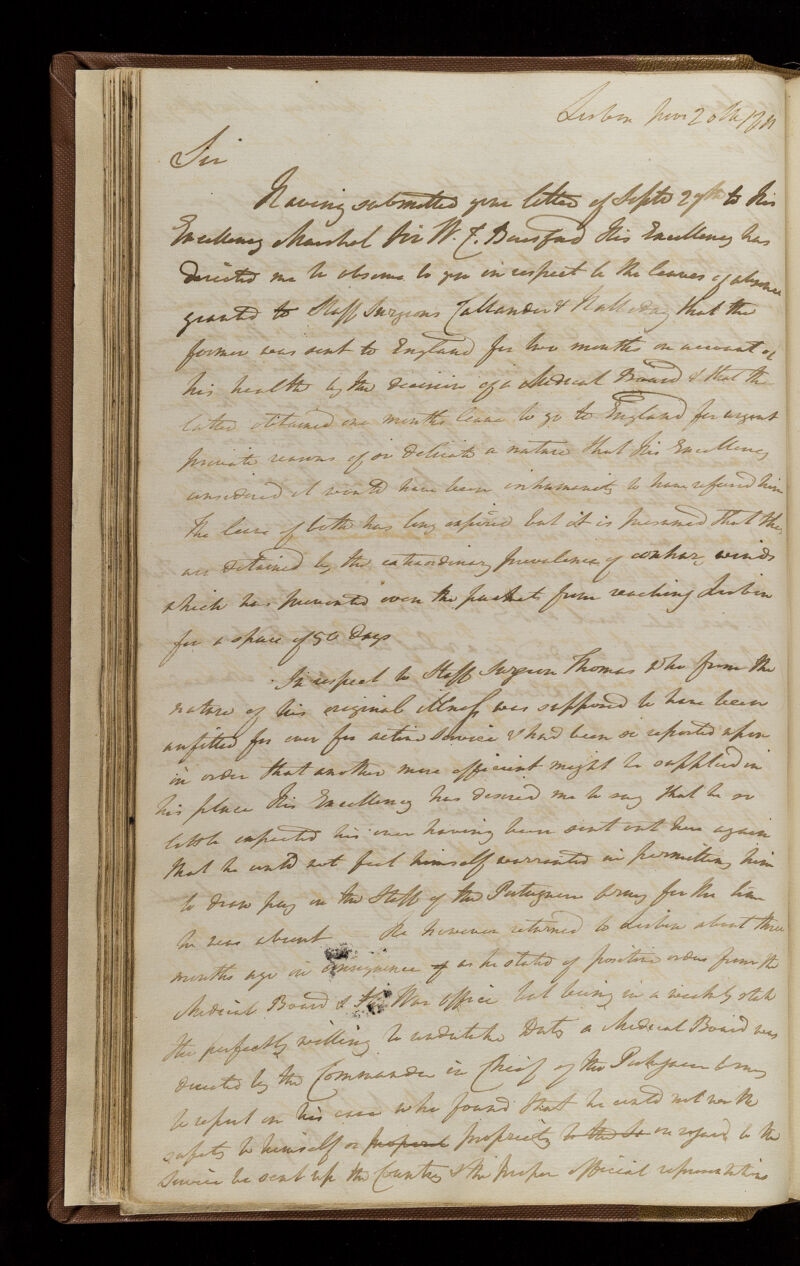 Lisbon Novr 20th 1811
Sir
Having submitted your letter of Septr 29th to His
Excellency Marshal Sir W. C. Beresford His Excellency has
directed me to observe to you in respect to the leaves of absence
granted to Staff Surgeons Callander & Halliday that the
former was sent to England for two months on account of
his health by the decision of a Medical Board & that the
latter obtained one months leave to go to England for urgent
private reasons of so delicate a nature that His Excellency
considered it would have been inhumanity to have refused him
The leave of both has long expired but it is presumed that they
are detained by the extraordinary prevalence of contrary winds
which has prevented even the packets from reaching Lisbon
for a space of 50 days
In respect to Staff Surgeon Thomas who from the
nature of his original illness was supposed to have been
unfitted for ever for active service & had been so reported upon
in order that another more efficient might be supplied in
his place His Excellency has desired me to say that he so
little expected his ever having been sent out here again
that he could not feel himself warranted in permitting him
to draw pay on the Staff of the Portuguese Army for the time
he was absent He however returned to Lisbon about three
months ago in consequence of as he stated of positive orders from the
Medical Board & the War Office but being in a weakly state
tho perfectly willing to undertake Duty a Medical Board was
directed by the Commander in Chief of the Portuguese Army
to report on his case who found that he could not with
safety to himself or propriety to the in regard to the
Service be sent up the Country & the proper official representations